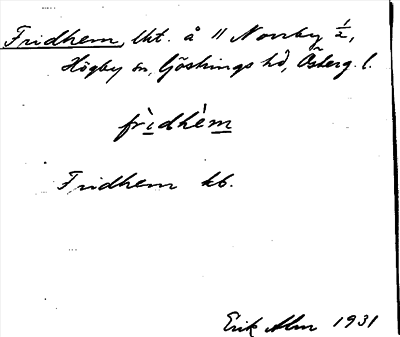 Fridhem, lht. å " Norrby 1/2,
Högby sn, Göstrings hd, Österg. l.
frìdhèm
Fridhem kb.
Erik Alm 1931